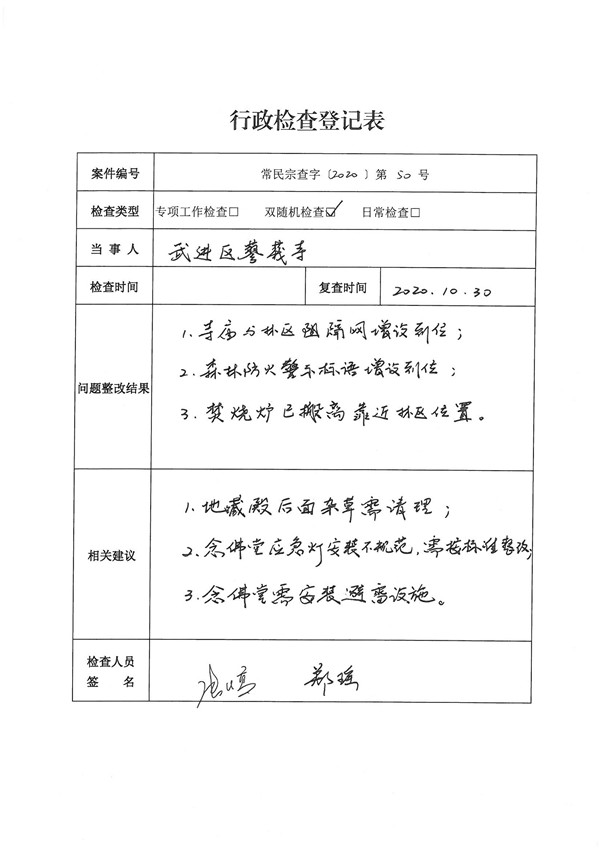 行政检查登记表
案件编号 常民宗查字〔2020〕第 50 号
检查类型 专项工作检查□ 双随机检查☑ 日常检查□
当事人 武进区藝莪寺
检查时间 复查时间 2020.10.30
问题整改结果
1.寺庙与林区阻隔网增设到位；
2.森林防火警示标语增设到位；
3.焚烧炉已搬离靠近林区位置。
相关建议
1.地藏殿后面杂草需清理；
2.念佛堂应急灯安装不规范，需按标准整改；
3.念佛堂需安装避雷设施。
检查人员
签 名 郑瑶